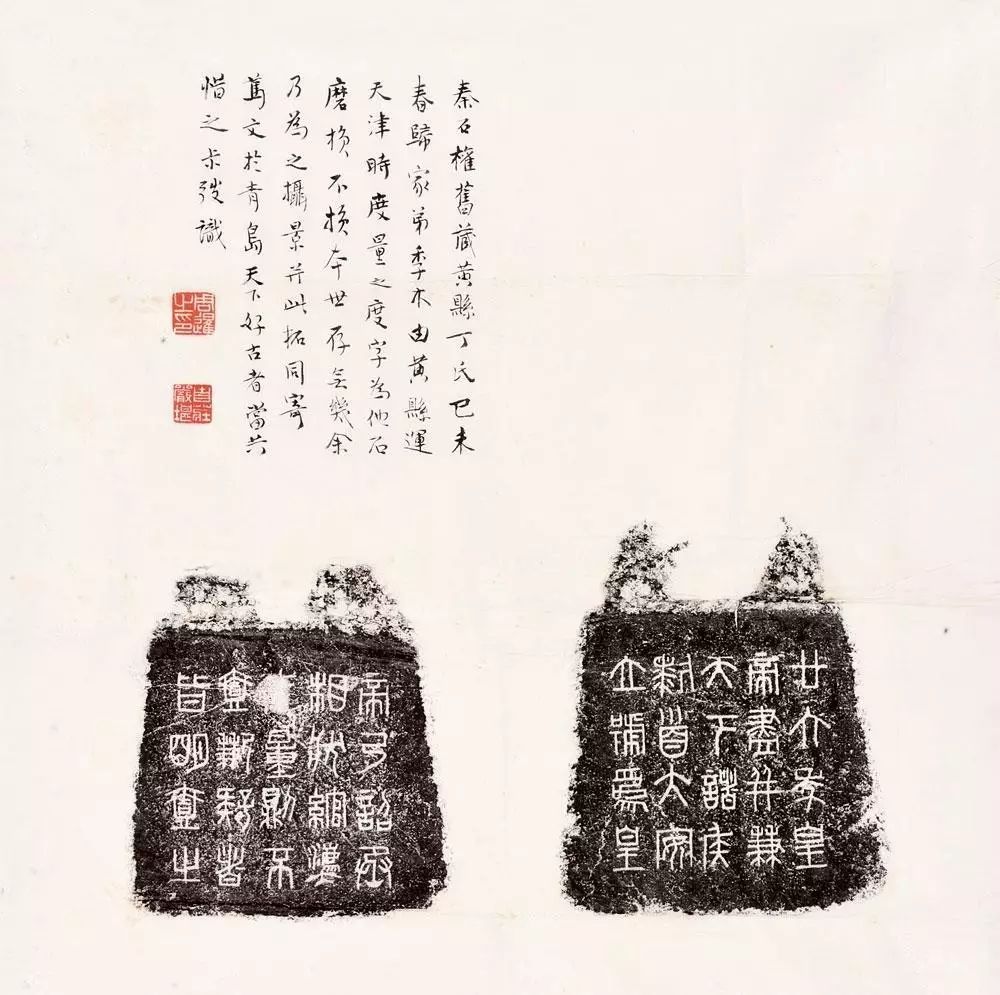 秦石權舊藏黃縣丁氏己未
春歸家弟季木由黃縣運
天津時度量之度字為他石
磨損不損本世存幾余
乃為之攝景并此拓同寄
文於青島天下好古者當共
惜之尗弢識
周暹之印
自莊嚴堪
廿六年皇
帝盡并兼
天下諸侯
黔首大安
立號為皇
帝乃詔丞
相狀綰灋
量則不
壹歉疑者
皆明壹之